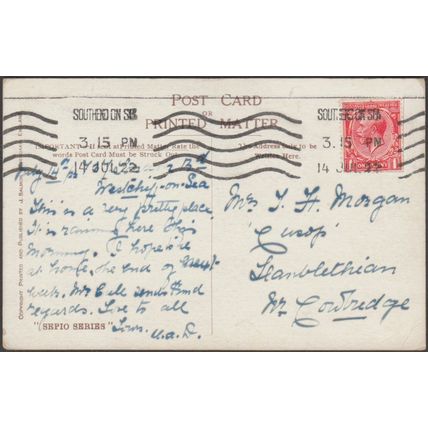 POST CARD
OR
PRINTED MATTER
SOUTHEND ON SEA
3. 15 PM
14 JUL 22
3. 15 PM
14 JUL 22
IMPORTANT If sent at Printed Matter Rate the
words Post Card Must be Struck Out.
The Address only to be
Written Here.
July 14th
on-Sea
This is a very pretty place
It is raining here this
morning. I hope to be
at home the end of next
week. Mr Bell sends kind
regards. Love to all
"SEPIO SERIES"
COPYRIGHT PRINTED AND PUBLISHED BY J. SALMON SEVENOAKS ENGLAND
Mrs J. H. Morgan
'Cusop'
Llanblethian
Nr. Cowbridge